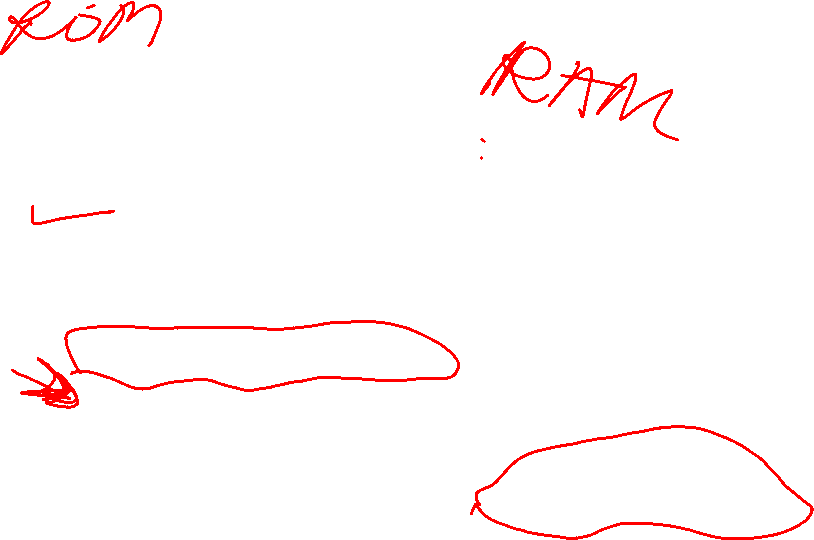 ROM
RAM
: